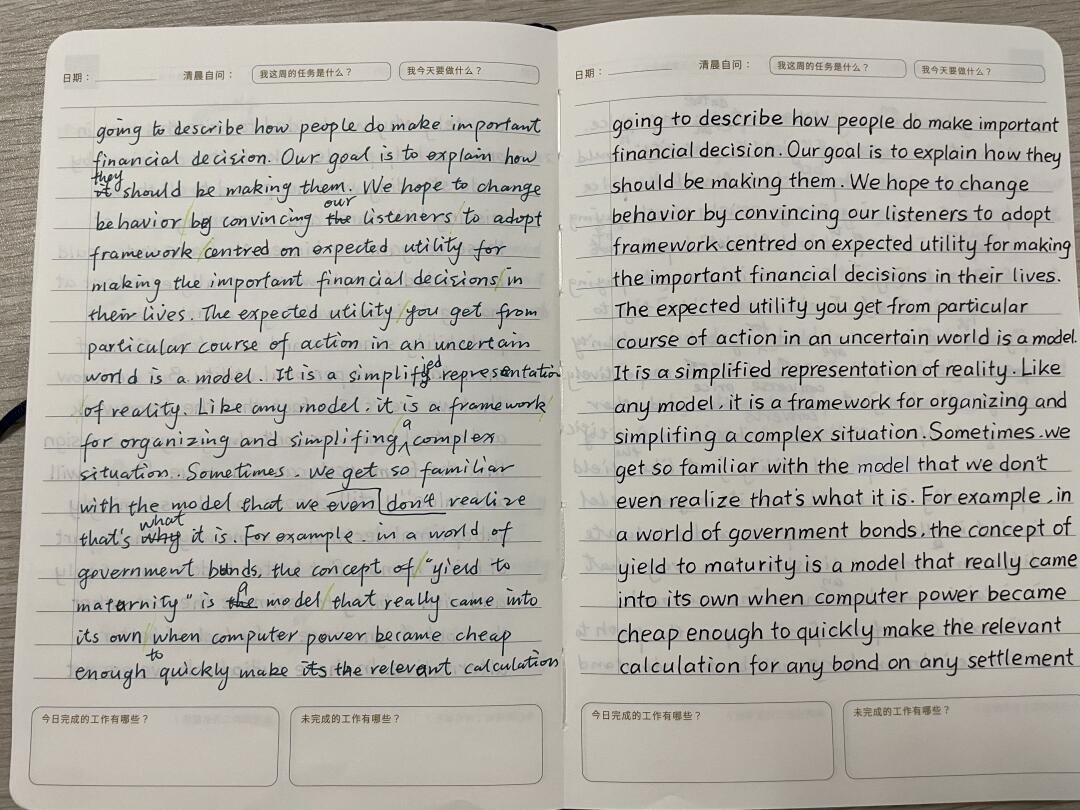 日期：
清晨自问：
我这周的任务是什么？
我今天要做什么？
going to describe how people do make important
financial decision. Our goal is to explain how
they
it should be making them. We hope to change
our
behavior by convincing the listeners to adopt
framework centred on expected utility for
making the important financial decisions in
their lives. The expected utility you get from
particular course of action in an uncertain
ied
world is a model. It is a simplify representation
of reality. Like any model, it is a framework
a
for organizing and simplifing complex
situation. Sometimes. we get so familiar
with the model that we even don't realize
what
that's why it is. For example. in a world of
government bonds, the concept of "yield to
a
maturnity" is the model that really came into
its own when computer power became cheap
to
enough quickly make its the relevant calculation
今日完成的工作有哪些？
未完成的工作有哪些？
日期：
清晨自问：
我这周的任务是什么？
我今天要做什么？
going to describe how people do make important
financial decision. Our goal is to explain how they
should be making them. We hope to change
behavior by convincing our listeners to adopt
framework centred on expected utility for making
the important financial decisions in their lives.
The expected utility you get from particular
course of action in an uncertain world is a model.
It is a simplified representation of reality. Like
any model, it is a framework for organizing and
simplifing a complex situation. Sometimes. we
get so familiar with the model that we don't
even realize that's what it is. For example, in
a world of government bonds, the concept of
yield to maturity is a model that really came
into its own when computer power became
cheap enough to quickly make the relevant
calculation for any bond on any settlement
今日完成的工作有哪些？
未完成的工作有哪些？